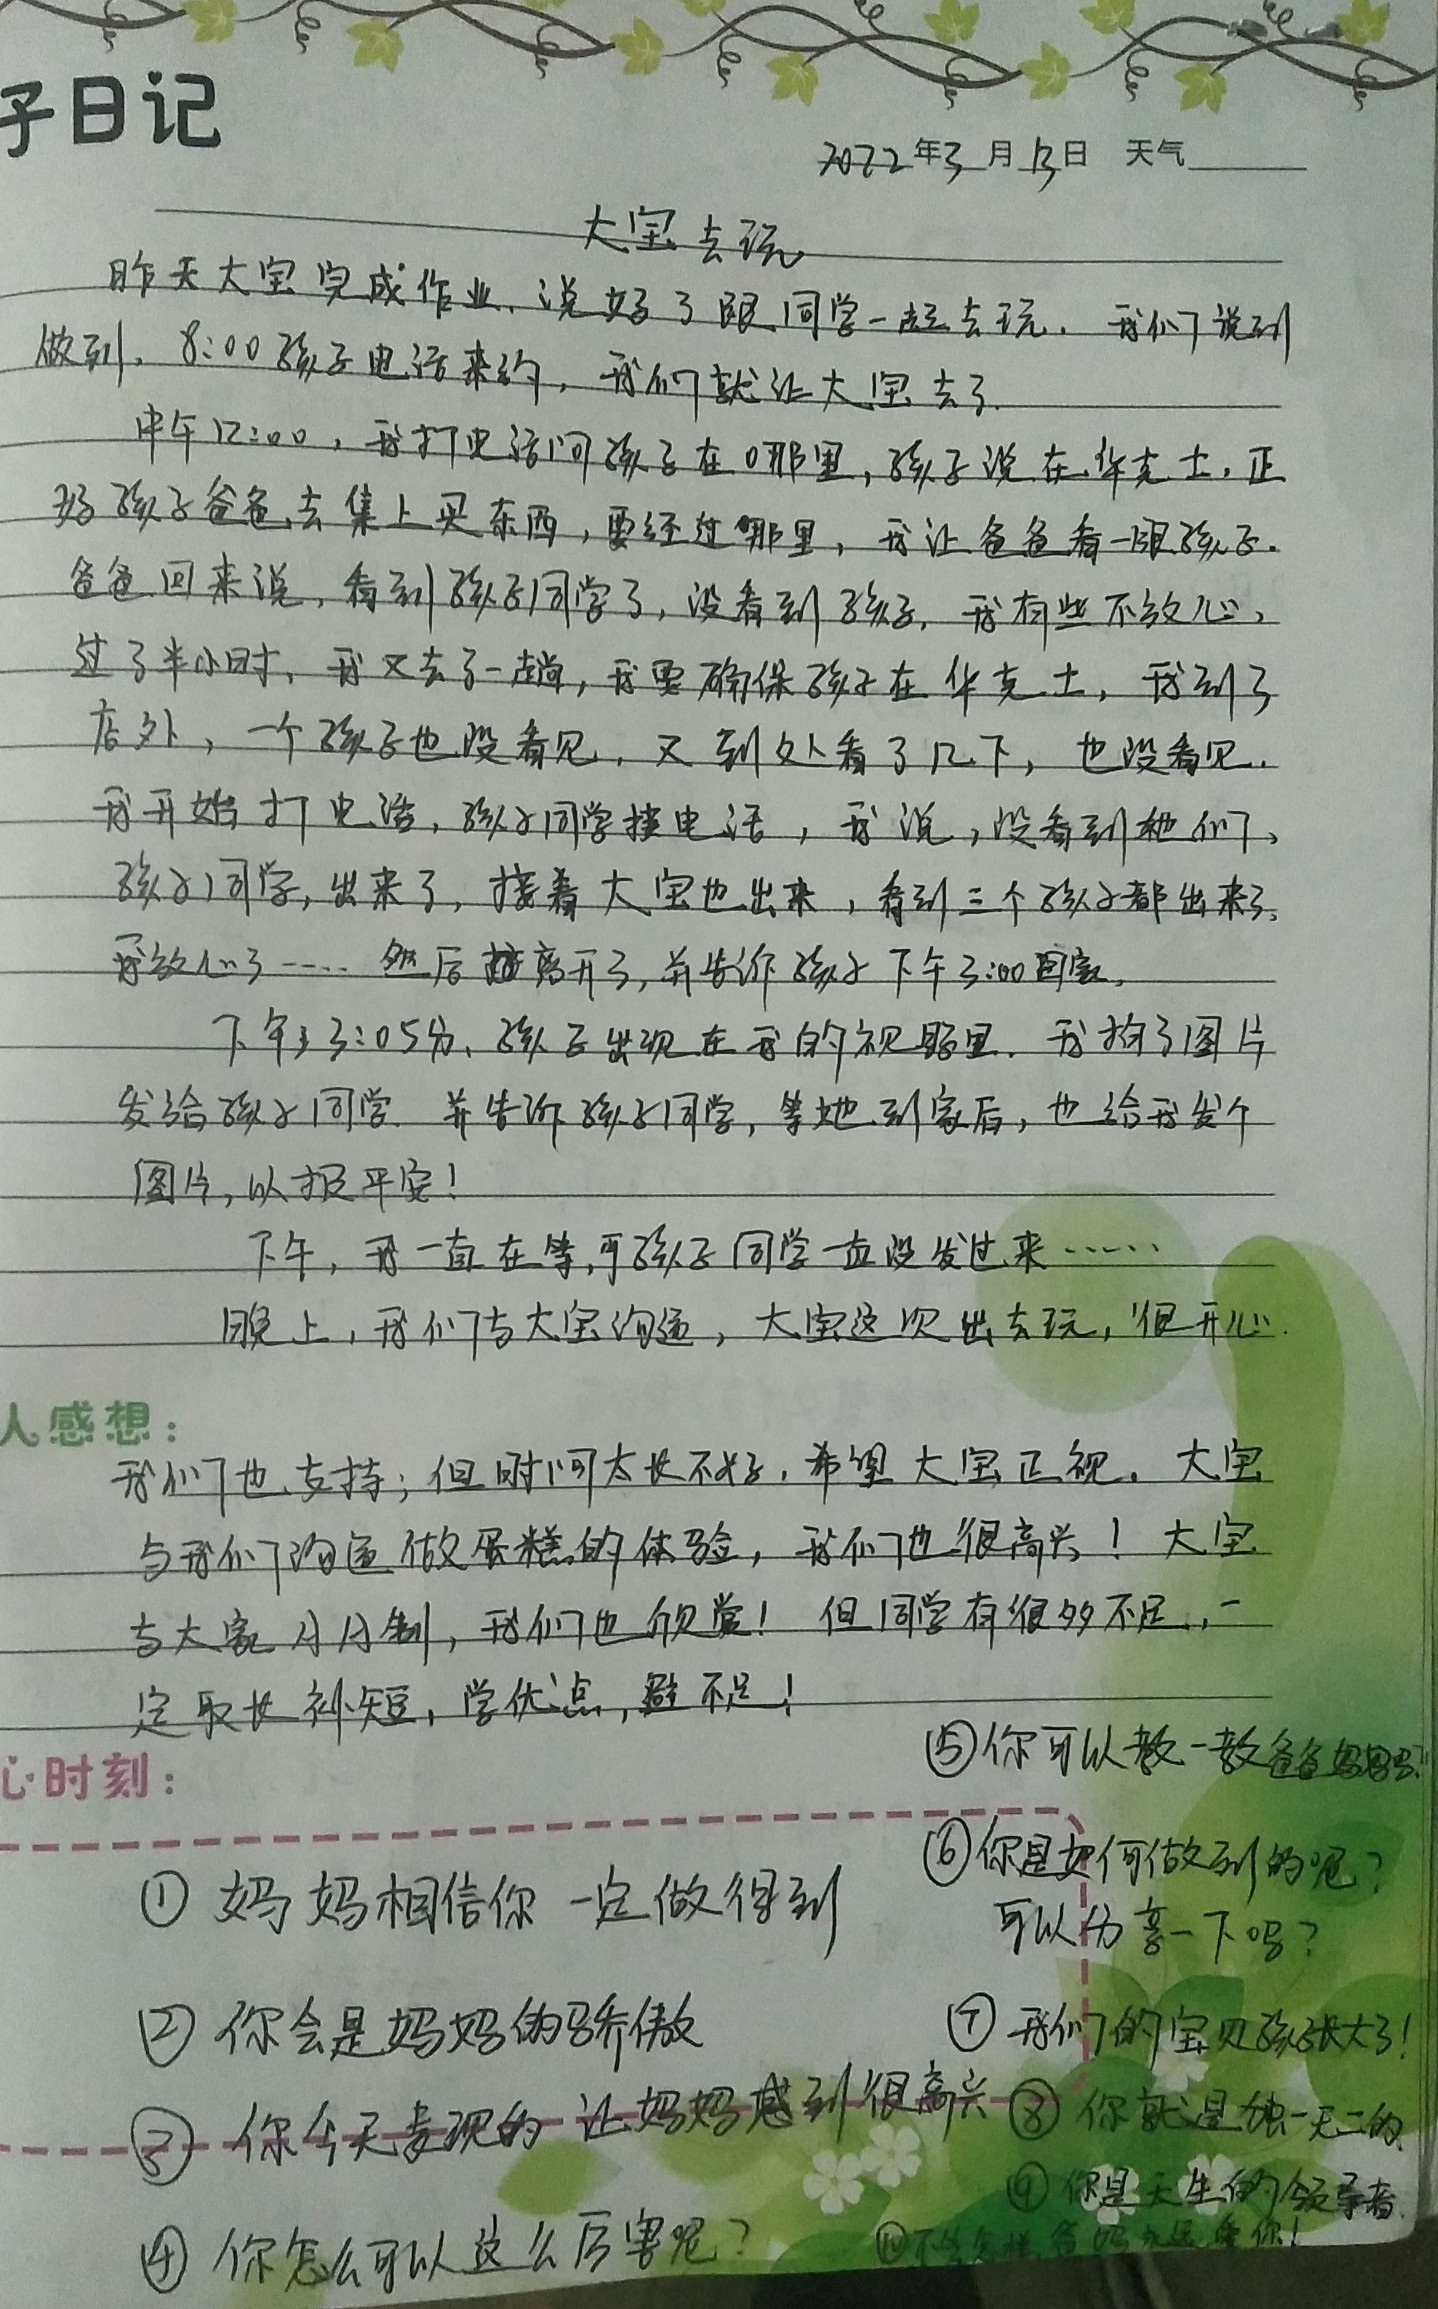 子日记
2022年3月13日 天气
大宝去玩
昨天大宝完成作业,说好了跟同学一起去玩.我们说到
做到,8:00孩子电话来约,我们就让大宝去了.
中午12:00,我打电话问孩子在哪里,孩子说在华克士,正
好孩子爸爸去集上买东西,要经过那里,我让爸爸看一眼孩子.
爸爸回来说,看到孩子同学了,没看到孩子,我有些不放心,
过了半小时,我又去了一趟,我要确保孩子在华克士,我到了
店外,一个孩子也没看见,又到处看了几下,也没看见.
我开始打电话,孩子同学接电话,我说,没看到她们,
孩子同学,出来了,接着大宝也出来,看到三个孩子都出来了,
我放心了…… 然后离开了,并告诉孩子下午3:00回家,
下午3:05分,孩子出现在我的视野里.我拍了图片
发给孩子同学.并告诉孩子同学,等她到家后,也给我发个
图片,以报平安!
下午,我一直在等,可孩子同学一直没发过来……
晚上,我们与大宝沟通,大宝这次出去玩,很开心.
人感想:
我们也支持;但时间太长不好,希望大宝正视.大宝
与我们沟通做蛋糕的体验,我们也很高兴!大宝
与大家AA制,我们也欣赏!但同学有很多不足,一
定取长补短,学优点,避不足!
心时刻:
①妈妈相信你一定做得到
②你会是妈妈的骄傲
③你今天表现的让妈妈感到很高兴
④你怎么可以这么厉害呢?
⑤你可以教一教爸爸妈妈吗?
⑥你是如何做到的呢?
可以分享一下吗?
⑦我们的宝贝孩子长大了!
⑧你就是独一无二的
⑨你是天生的领导者
⑩不管怎样,爸妈永远爱你!